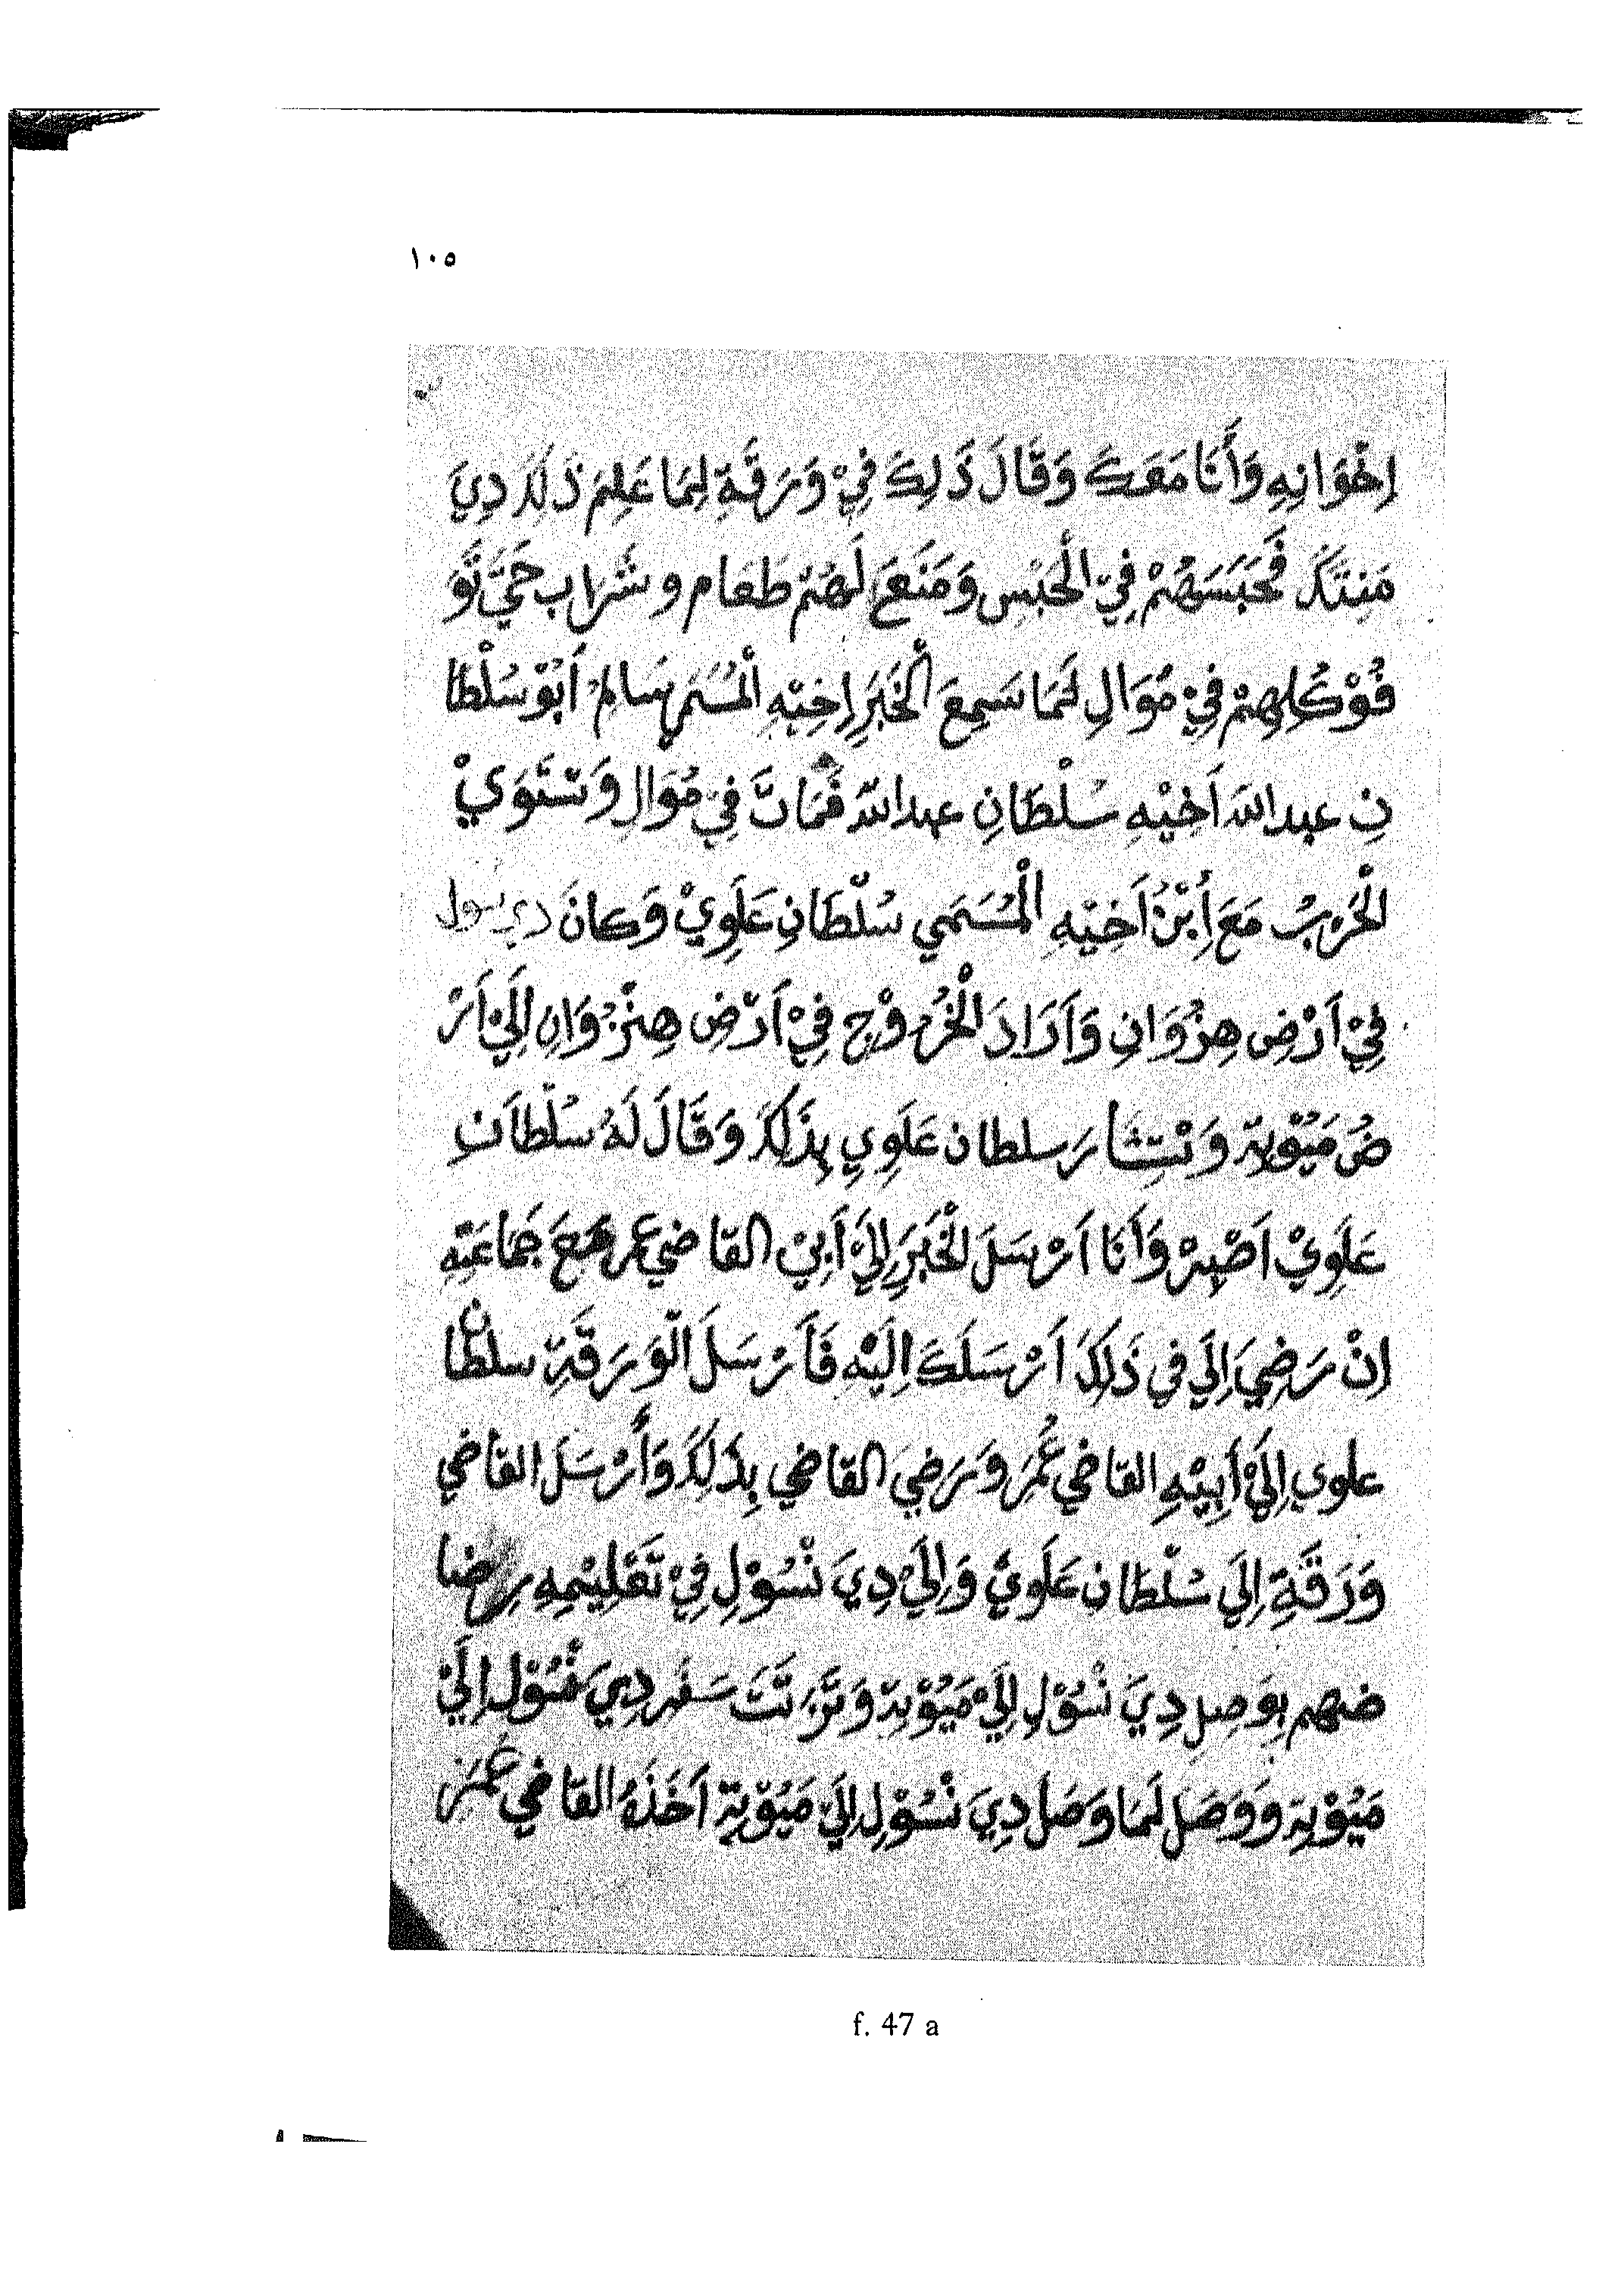 ١٠٥
اِخْوَانِهِ وَأَنَا مَعَكَ وَقَالَ ذَلِكَ فِيْ وَرَقَةِ لِمَا عَلِمَ ذَلِكَ دِيَ
مَنِتَكَ فَحَبَسَهُمْ فِيْ الْحَبْسِ وَمَنَعَ لَهُمْ طَعَام وشَرَاب حَتَّي تَّوَ
فُوْ كُلِهِمْ فِيْ مُوَالِ لَمَا سَمِعَ الْخَبَرَ اِخِيْهِ الْمُسَمَي سَالِمْ اَبُوْ سُلْطَا
نِ عبد الله اَخِيْهِ سُلْطَانِ عبد الله فَمَاتَ فِيْ مُوَالِ وَسْتَوَيْ
الْحَرْبُ مَعَ اِبْنُ اَخِيْهِ الْمُسَمَي سُلْطَانِ عَلَوِيْ وَكانَ دي نسول
فِيْ اَرْضِ هِنْزُوَانِ وَاَرَادَ الْخُرُوْجِ فِيْ اَرْضِ هِنْزُوَانِ اِلَيْ اَرْ
ضُ مَيُوْتِة وَنْتِشَارَ سلطان عَلَوِي بِذَلِكَ وَقَالَ لَهُ سُلْطَانِ
عَلَوِيْ اَصْبِرْ وَأَنَا اَرْسَلَ لْخَبَرَ اِلَيْ اَبِيْ القاضي عمر مَعَ جَمَاعَتِهِ
اِنْ رَضِيَ اِلَي في ذَلِكَ اَرْسَلَكَ اِلَيْهِ فَاَرْسَلَ الْوَرَقَةِ سلطان
علوي اِلَيْ أَبِيْهِ القاضي عُمَرَ وَرَضِيَ القاضي بِذَلِكَ وَأَرْسَلَ القاضي
وَرَقَةِ اِلَي سُلْطَانِ عَلَوِيْ وَاِلَيْ دِيَ نْسُوْلِ فِيْ تَعْلِيْمِهِ رِضا
ضهم بِوَصِلِ دِيَ نْسُوْلِ اِلَيْ مَيُوْتِة وَتَّرَتَبَ سَفَر دِيَ نْسُوْلِ اِلَيْ
مَيُوْتِة وَوَصَلَ لَمَا وَصَلَ دِيَ نْسُوْلِ اِلَيْ مَيُوْتِة اَخَذَهُ القاضي عُمَرَ
f. 47 a